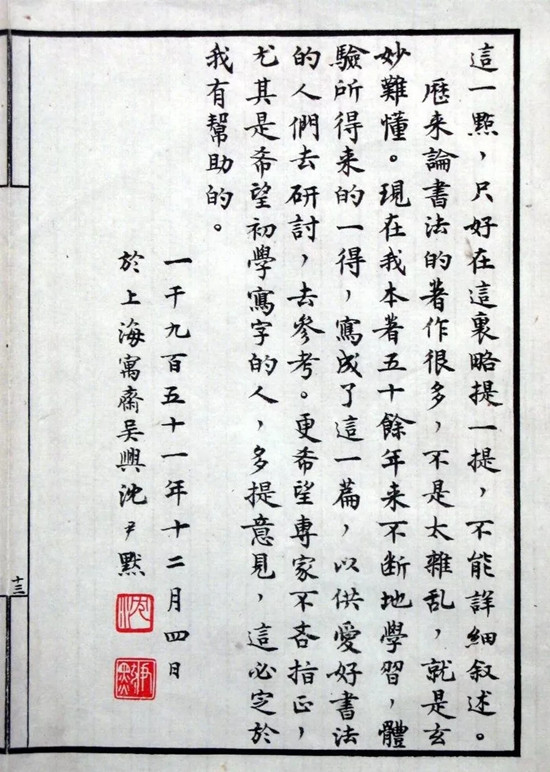 這一點，只好在這裏略提一提，不能詳細叙述。
歷来論書法的著作很多，不是太雜乱，就是玄
妙難懂。現在我本着五十餘年来不断地學習，體
驗所得来的一得，寫成了這一篇，以供愛好書法
的人們去研討，去參考。更希望專家不吝指正，
尤其是希望初學寫字的人，多提意見，這必定於
我有幫助的。
一千九百五十一年十二月四日
於上海寓齋吳興沈尹默
沈
尹默
十三